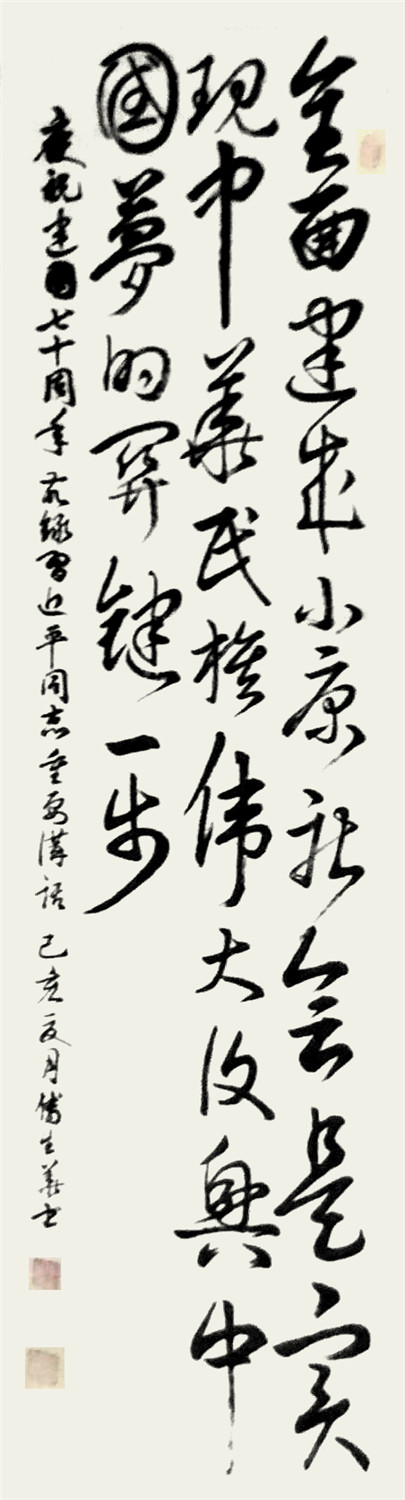 全面建成小康社会是实
现中華民族伟大复興中
國夢的関鍵一步
慶祝建国七十周年 敬録習近平同志重要講話 己亥夏月傅生華书